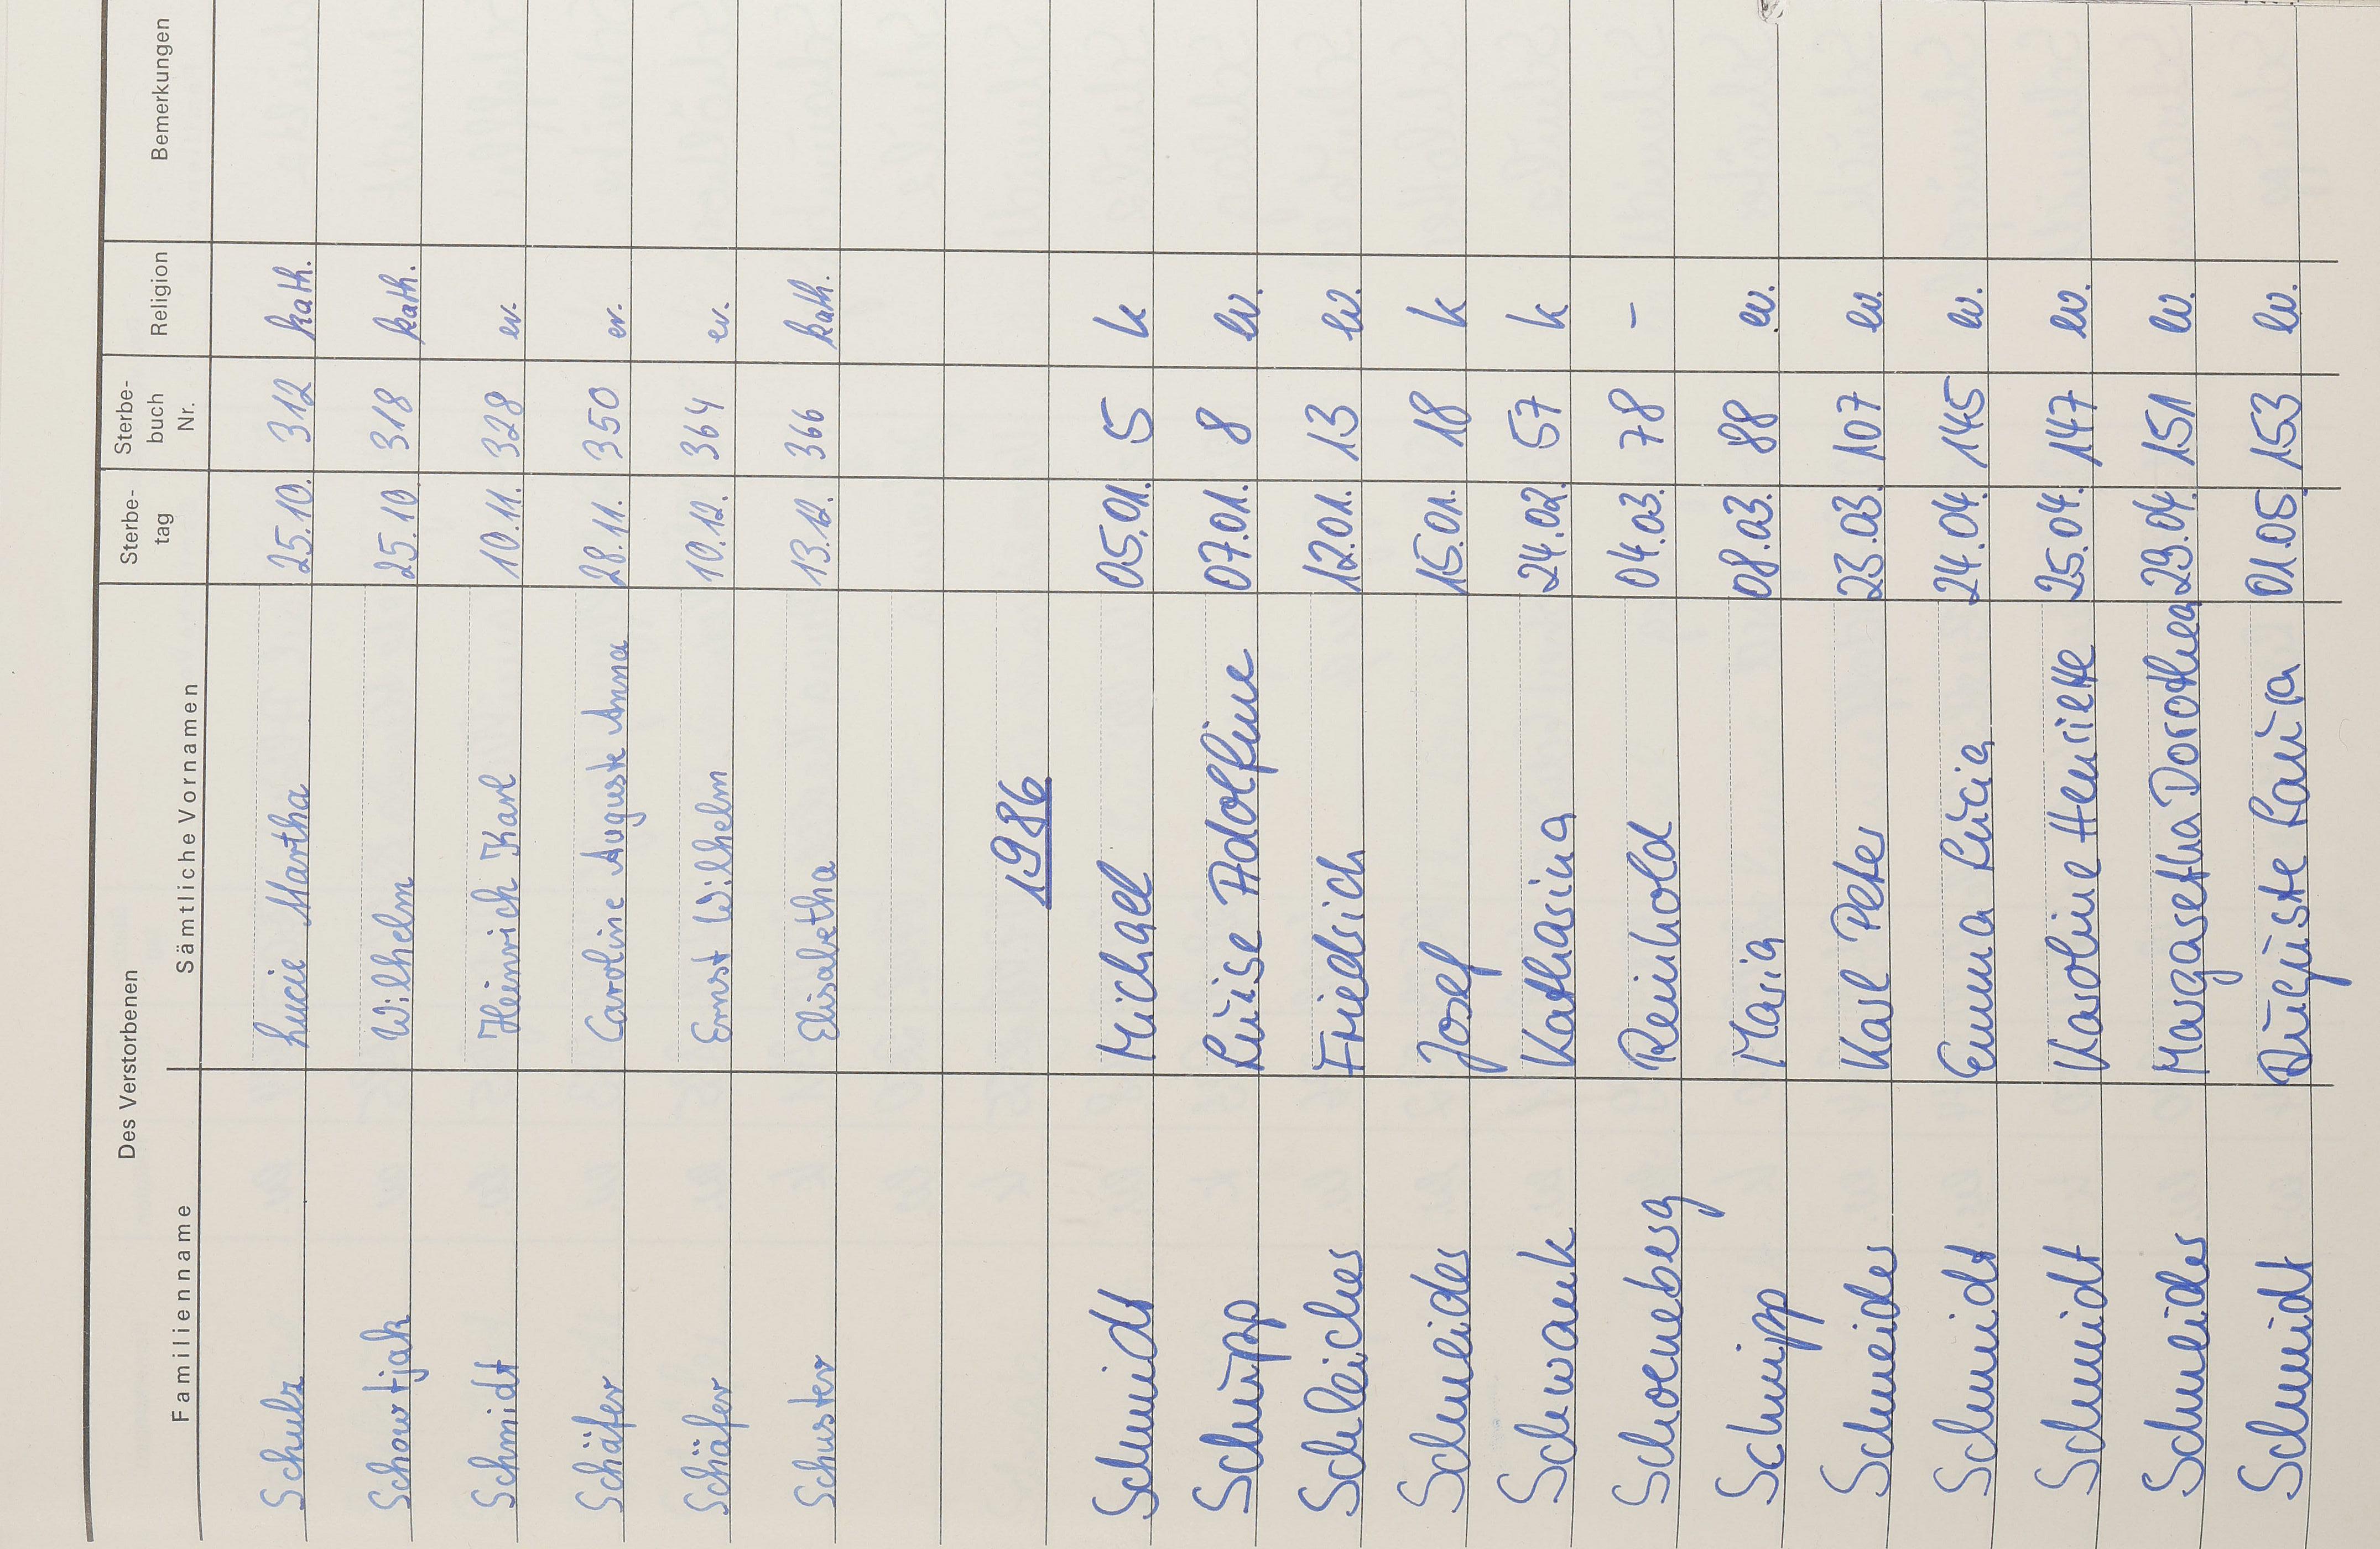 Des Verstorbenen
Familienname Sämtliche Vornamen Sterbe-tag Sterbe-buch Nr. Religion Bemerkungen
Schulz Lucie Martha 25.10. 312 kath.
Schowtjak Wilhelm 25.10 318 kath.
Schmidt Heinrich Karl 10.11. 328 ev.
Schäfer Caroline Auguste Anna 28.11. 350 ev.
Schäfer Ernst Wilhelm 10.12. 364 ev.
Schuster Elisabetha 13.12. 366 kath.
1986
Schmidt Michael 05.01. 5 k
Schupp Luise Adolfine 07.01. 8 ev.
Schleicher Friedrich 12.01. 13 ev.
Schneider Josef 15.01. 18 k
Schwank Katharina 24.02. 57 k
Schoeneberg Reinhold 04.03. 78 –
Schnipp Maria 08.03. 88 ev.
Schneider Karl Peter 23.03. 107 ev.
Schmidt Emma Lucia 24.04. 145 ev.
Schmidt Karoline Henriette 25.04. 147 ev.
Schneider Margaretha Dorothea 29.04. 151 ev.
Schmidt Auguste Laura 01.05. 153 ev.